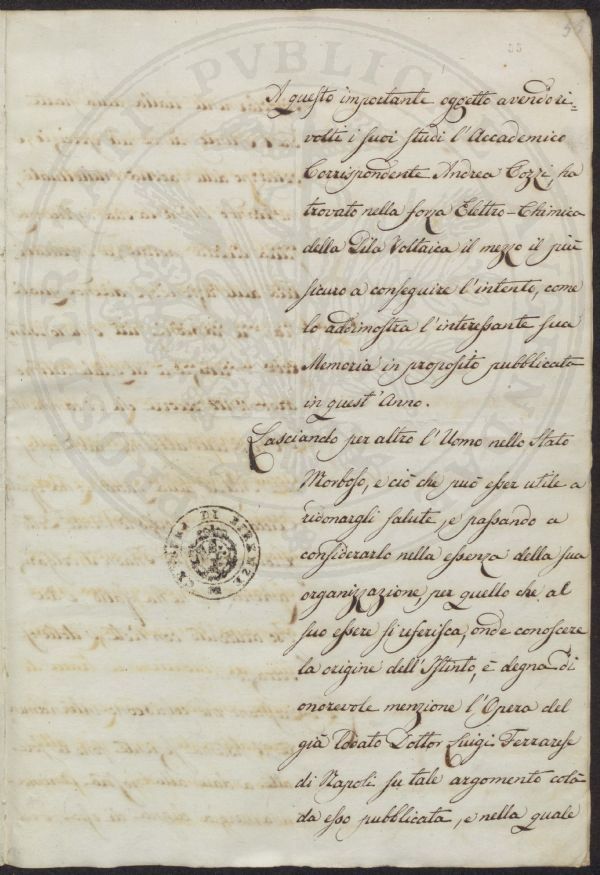 A questo importante oggetto avendo ri=
volti i suoi studi l'Accademico
Corrispondente Andrea Cozzi, ha
trovato nella forza Elettro-Chimica
della Pila Voltaica il mezzo il più
sicuro a conseguire l'intento, come
lo addimostra l'interessante sua
Memoria in proposito pubblicata
in quest'Anno.
Lasciando per altro l'Uomo nello Stato
Morboso, e ciò che può esser utile a
ridonargli salute, e passando a
considerarlo nella essenza della sua
organizzazione, per quello che al
suo essere si riferisca, onde conoscere
la origine dell'Istinto, è degna di
onorevole menzione l'Opera del
già lodato Dottor Luigi Ferrarese
di Napoli su tale argomento colà
da esso pubblicata, e nella quale